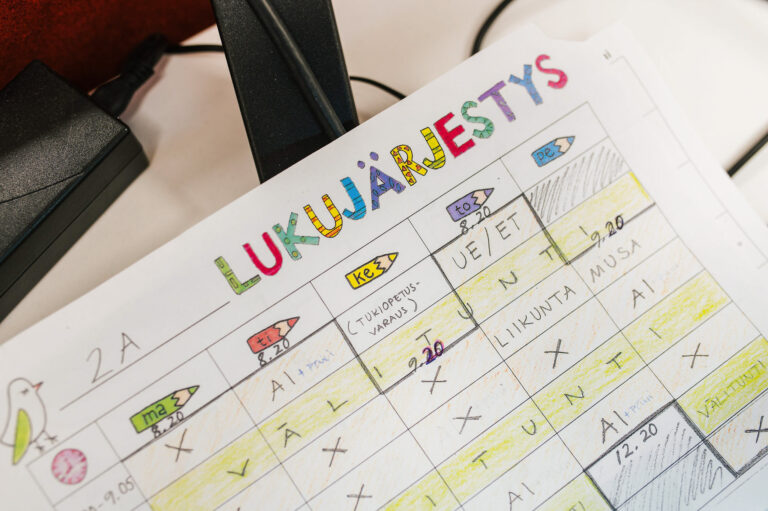 LUKUJÄRJESTYS
2A
ma ti ke to pe
8.20 8.20 8.20
X AI + (TUKIOPETUS-VARAUS) UE/ET
VÄLITUNTI 9.20
X X 9.20 LIIKUNTA MUSA
X X X AI
VÄLITUNTI
X AI AI + X
12.20 VÄLITUNTI
X
-9.05